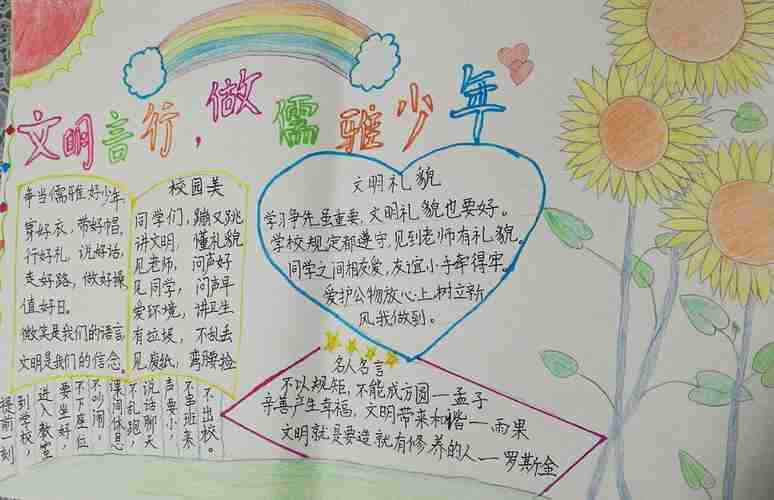 文明言行，做儒雅少年
争当儒雅好少年
穿好衣，带好帽，
行好礼，说好话，
走好路，做好操
值好日。
微笑是我们的语言
文明是我们的信念。
校园美
同学们，蹦又跳
讲文明，懂礼貌
见老师，问声好
见同学，问声早
爱环境，讲卫生
有垃圾，不乱丢
见废纸，弯腰捡
文明礼貌
学习争先虽重要，文明礼貌也要好。
学校规定都遵守，见到老师有礼貌。
同学之间相友爱，友谊小手牵得牢。
爱护公物放心上，树立新
风我做到。
名人名言
不以规矩，不能成方圆—孟子
亲善产生幸福，文明带来和谐—雨果
文明就是要造就有修养的人—罗斯金
提前一刻
到学校，
进入教室
要坐好，
不下座位
不吵闹，
课间休息
不乱跑，
说话聊天
声要小，
不串班来
不出校。